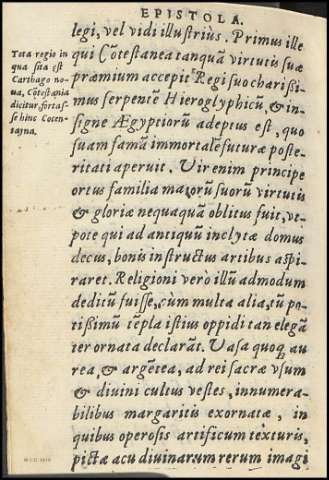 EPISTOLA.
legi, vel vidi illustrius. Primus ille
qui Cõtestanea tanquã virtutis suæ
præmium accepit. Regi suo charissi-
mus serpentẽ Hieroglyphicũ & in-
signe Ægyptiorũ adeptus est, quo
suam famã immortalẽ futuræ poste-
ritati aperuit. Vir enim principe
ortus familia maiorũ suorũ virtutis
& gloriæ nequaquã oblitus fuit, vt-
pote qui ad antiquũ inclytæ domus
decus, bonis instructus artibus aspi-
raret. Religioni vero illũ admodum
deditũ fuisse, cum multa alia, tũ po-
tissimũ tẽpla istius oppidi tan elegã
ter ornata declarãt. Vasa quoq; au-
rea, & argẽtea, ad rei sacræ vsum
& divini cultus vestes, innumera-
bilibus margaritis exornatæ, in
quibus operosis artificum texturis,
pictæ acu divinarum rerum imagi
Tota regio in
qua sita est
Carthago no-
ua, Cõtestania
dicitur, fortas-
se hinc Cocen-
tayna.